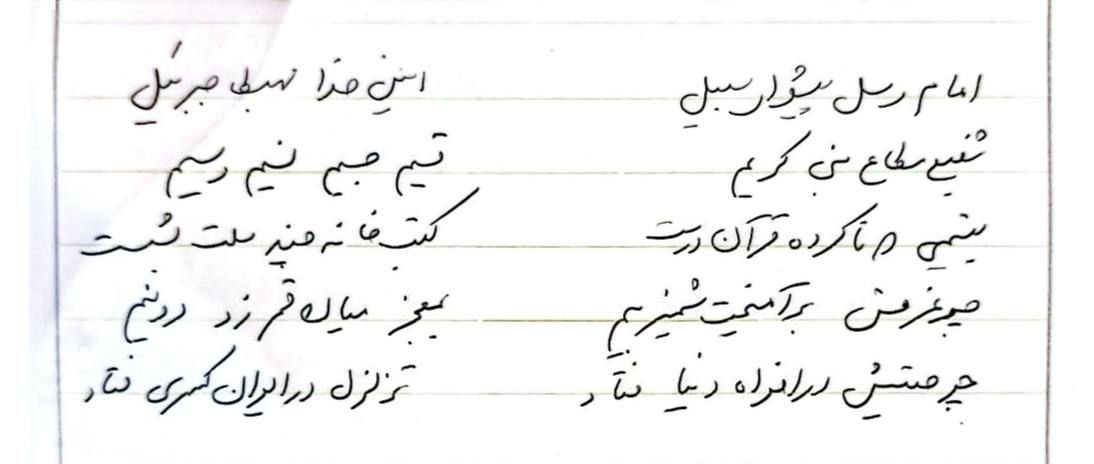 امام رسل پیشوای سبیل امین خدا مهبط جبرئیل
شفیع مطاع نبی کریم قسیم جسیم نسیم وسیم
یتیمی که ناکرده قرآن درست کتب خانه چند ملت بشست
چو عزمش برآهیخت شمشیر بیم بمعجز میان قمر زد دو نیم
چو صیتش در افواه دنیا فتاد تزلزل در ایوان کسری فتاد